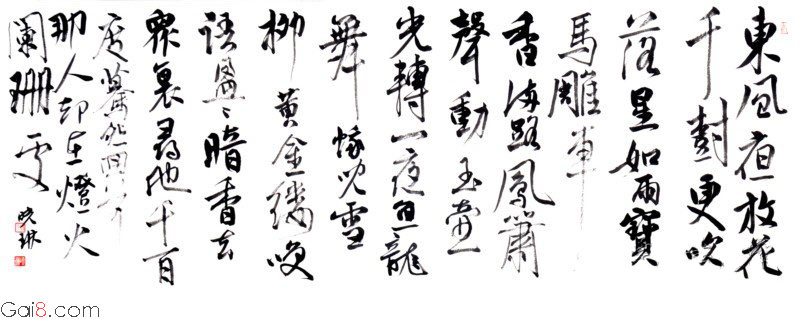 東風夜放花
千對更吹
落星如雨寶
馬雕車
香滿路鳳簫
聲動玉壺
光轉一夜魚龍
舞蛾兒雪
柳黃金縷笑
語盈〻暗香去
眾裏尋他千百
度驀然回首
那人却在燈火
闌珊處
曉琳
Gai8.com